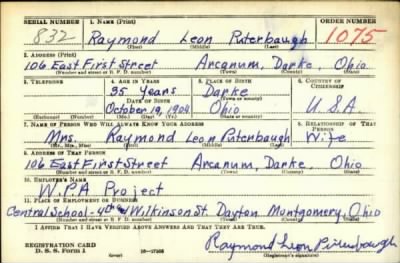 SERIAL NUMBER 1. NAME (Print) ORDER NUMBER
832 Raymond Leon Puterbaugh 1075
(First) (Middle) (Last)
2. ADDRESS (Print)
106 East First Street Arcanum, Darke, Ohio
(Number and street or R. F. D. number) (Town) (County) (State)
3. TELEPHONE 4. AGE IN YEARS 5. PLACE OF BIRTH 6. COUNTRY OF CITIZENSHIP
35 Years Darke
DATE OF BIRTH (Town or county)
October 19, 1904 Ohio U.S.A.
(Exchange) (Number) (Mo.) (Day) (Yr.) (State or country)
7. NAME OF PERSON WHO WILL ALWAYS KNOW YOUR ADDRESS 8. RELATIONSHIP OF THAT PERSON
Mrs. Raymond Leon Puterbaugh Wife
(Mr., Mrs., Miss) (First) (Middle) (Last)
9. ADDRESS OF THAT PERSON
106 East First Street Arcanum, Darke, Ohio
(Number and street or R. F. D. number) (Town) (County) (State)
10. EMPLOYER'S NAME
W.P.A Project
11. PLACE OF EMPLOYMENT OR BUSINESS
Central School-4th and Wilkinson St. Dayton Montgomery, Ohio
(Number and street or R. F. D. number) (Town) (County) (State)
I AFFIRM THAT I HAVE VERIFIED ABOVE ANSWERS AND THAT THEY ARE TRUE.
REGISTRATION CARD
D. S. S. Form 1 (over) Raymond Leon Puterbaugh
(Registrant's signature)